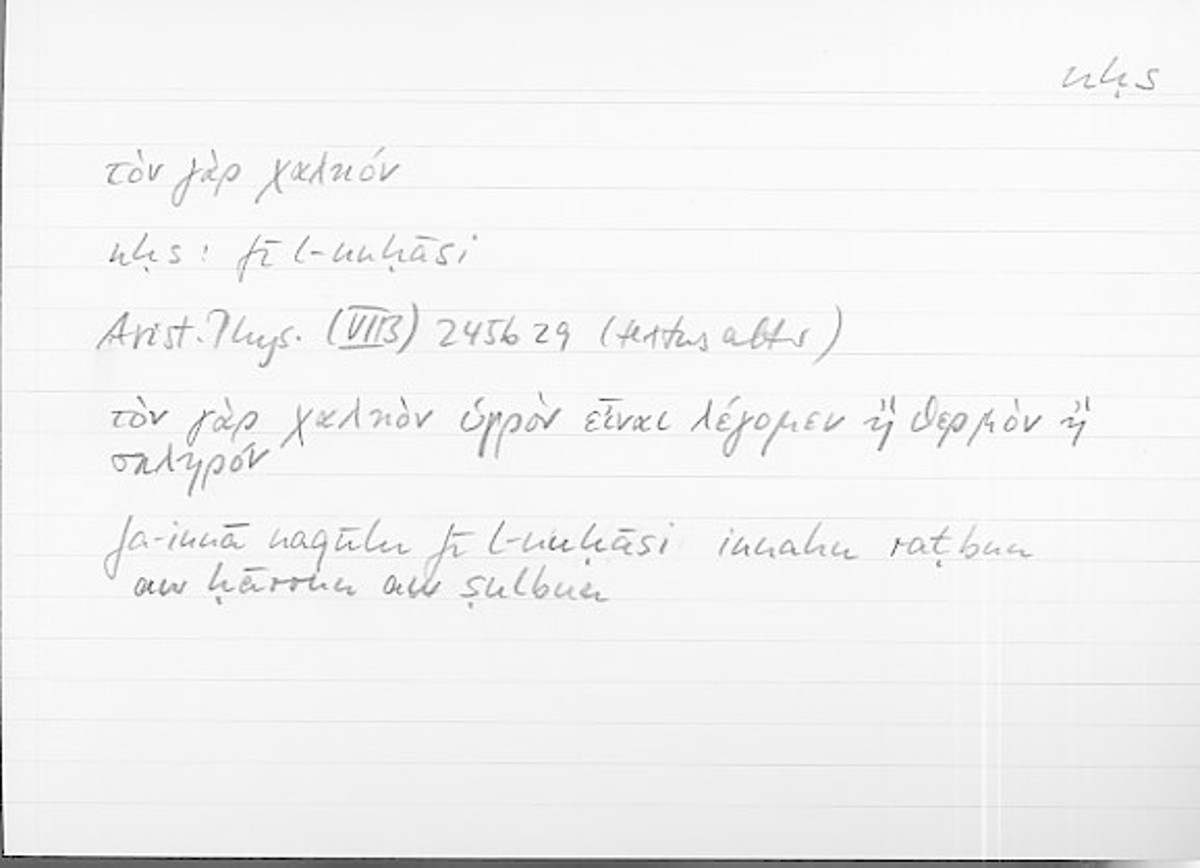 nḥs
τὸν γὰρ χαλκόν
nḥs: fī l-nuḥāsi
Arist. Phys. (VIIB) 245b29 (textus alter)
τὸν γὰρ χαλκὸν ὑγρὸν εἶναι λέγομεν ἢ θερμὸν ἢ
σκληρόν
fa-innā naqūlu fī l-nuḥāsi innahu raṭbun
aw ḥārrun aw ṣulbun